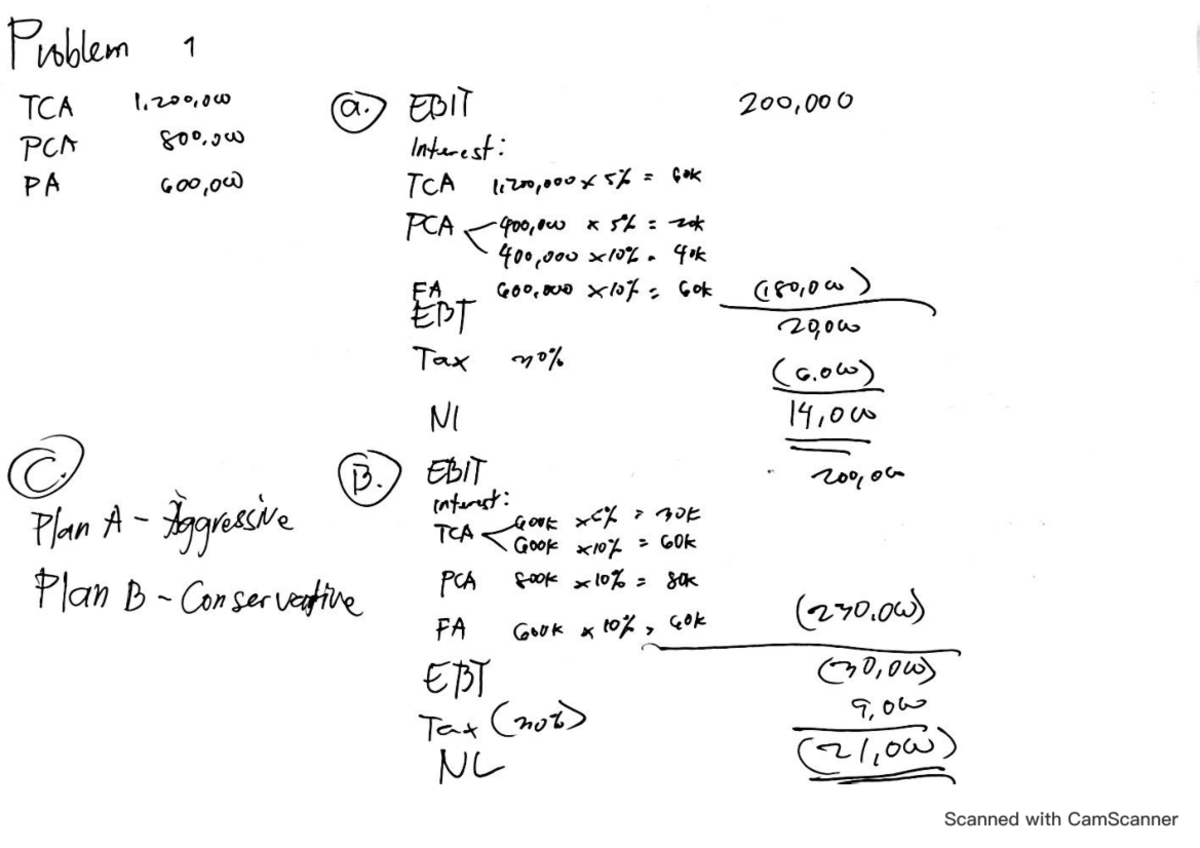 Problem 1
TCA 1,200,000
PCA 800,000
PA 600,000
a. EBIT 200,000
Interest:
TCA 1,200,000 x 5% = 60k
PCA 400,000 x 5% = 20k
400,000 x 10% = 40k
FA 600,000 x 10% = 60k (180,000)
EBT 20,000
Tax 30% (6,000)
NI 14,000
C.
Plan A - Aggressive
Plan B - Conservative
B. EBIT 200,000
interest:
TCA 600k x 5% = 30k
600k x 10% = 60k
PCA 800k x 10% = 80k
FA 600k x 10% = 60k (230,000)
EBT (30,000)
Tax (30%) 9,000
NL (21,000)
Scanned with CamScanner